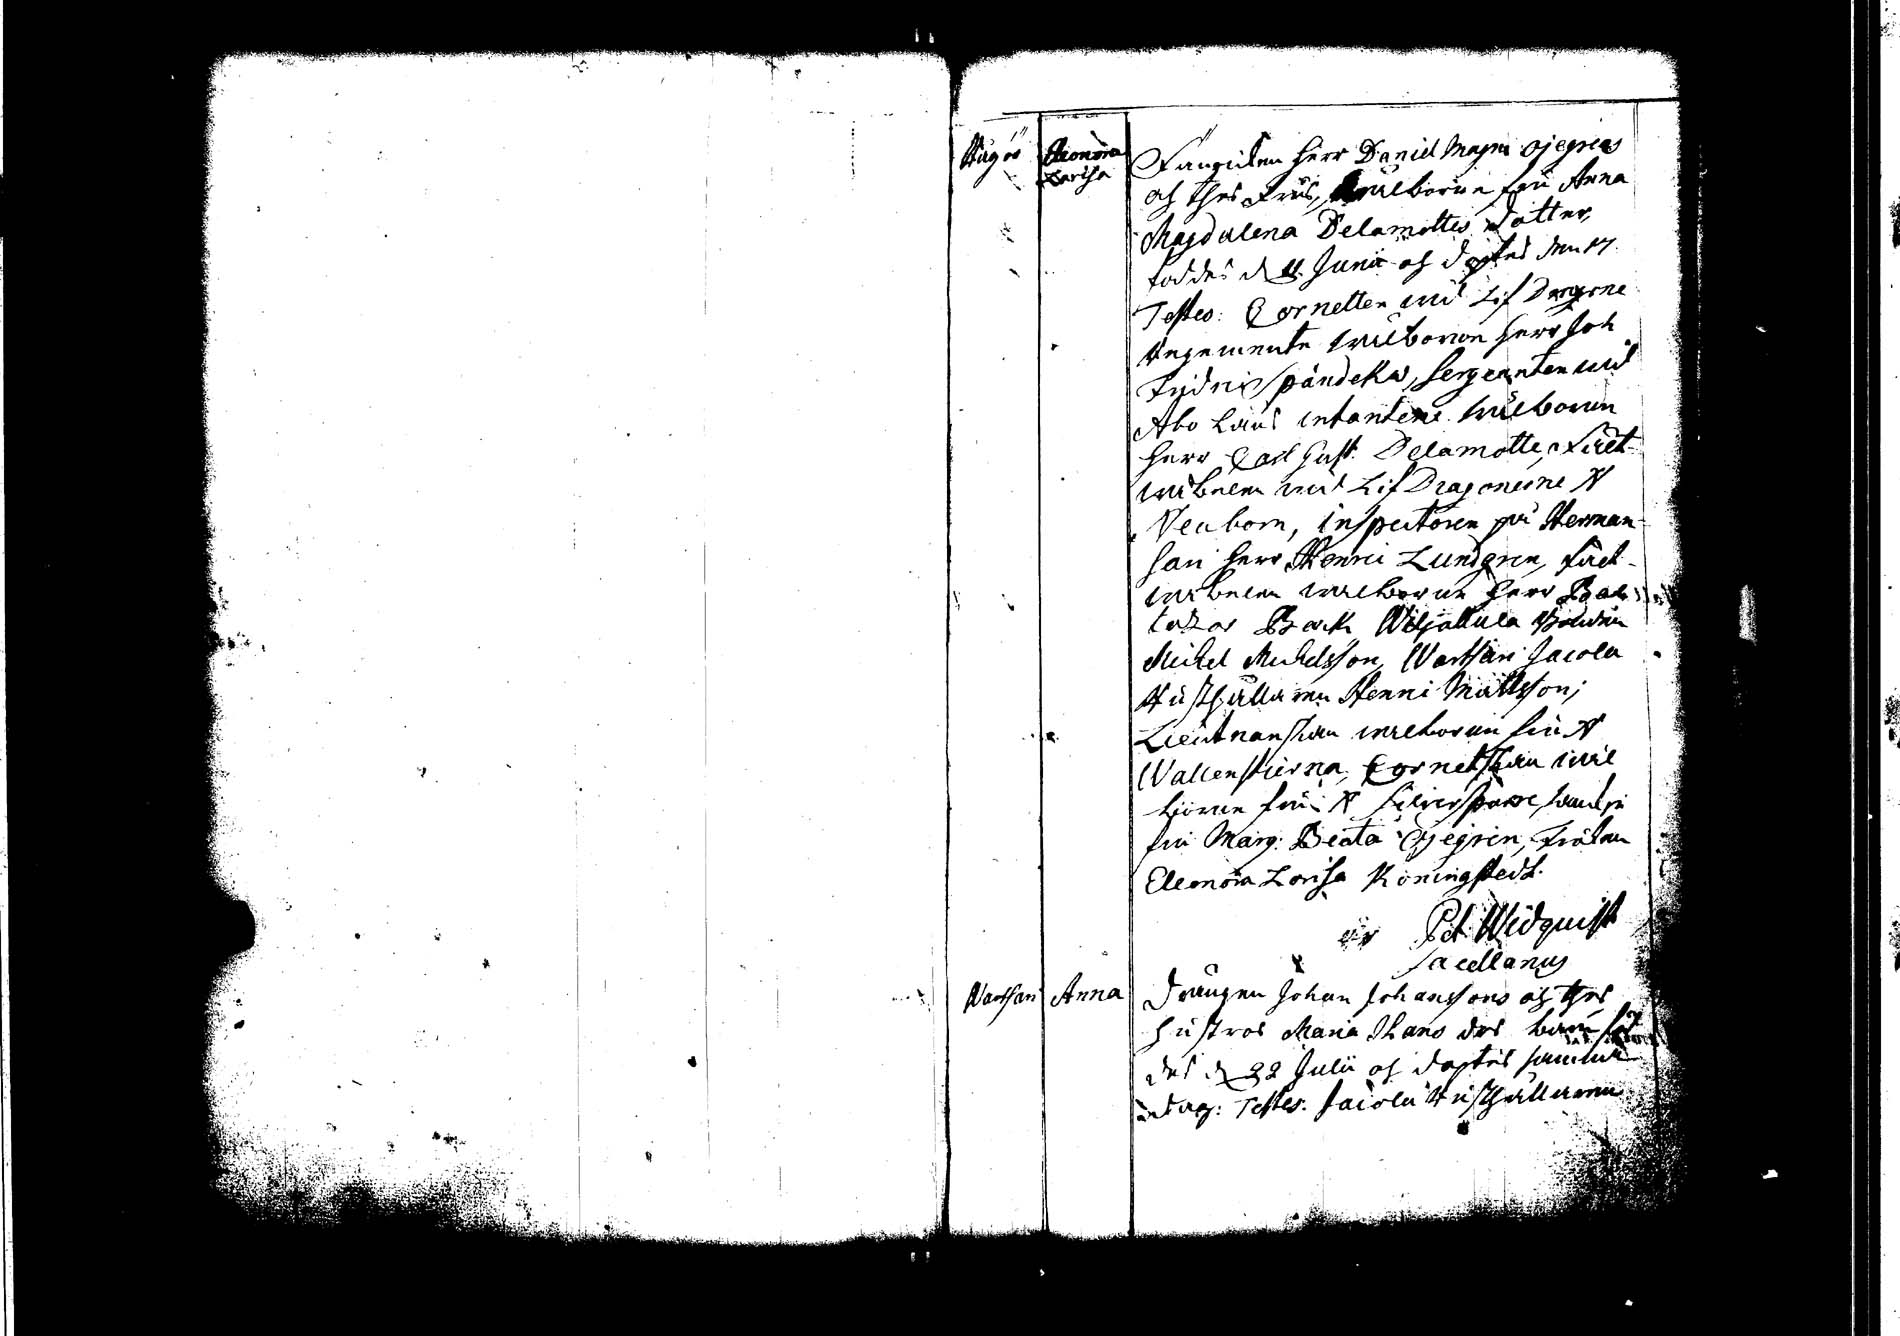 Hugös Eleonora Lovisa
Fänricken Herr Daniel Magni Ojegrens
och thes Frus, wälborna fru Anna
Magdalena Delamottes dotter,
föddes d 11 Junii och döptes den 17
Testes: Cornetten wid Lif Dragone
Regemente wälborne Herr Joh
Sergeanten wid
Åbo Läns infanterie wälborne
Herr Carl Gust. Delamotte, Fält-
wäbelen wid Lif Dragonerne N
Veaborn, inspectoren på Herman-
sari Herr Henric Lundgren, fält-
wäbelen wälborne Herr Bal-
tazar Back, Wiljakkala Bonden
Michel Michelsson, Wartsari Jacola
Rusthållaren Henric Mattsson;
Lieutnanskan wälborna fru N
Wallenstierna, Cornetskan wäl
borna fru N Silfversparre,
fru Marg: Beata Ojegren, Fröken
Eleonora Lovisa Köningstedt.
Pet. Widquist
Sacellanus
Wartsari Anna
Drängen Johan Johanssons och thes
hustros Maria Thomsdrs barn föd
des d 22 Julii och döptes samma
dag: Testes: Jacola Rusthållaren